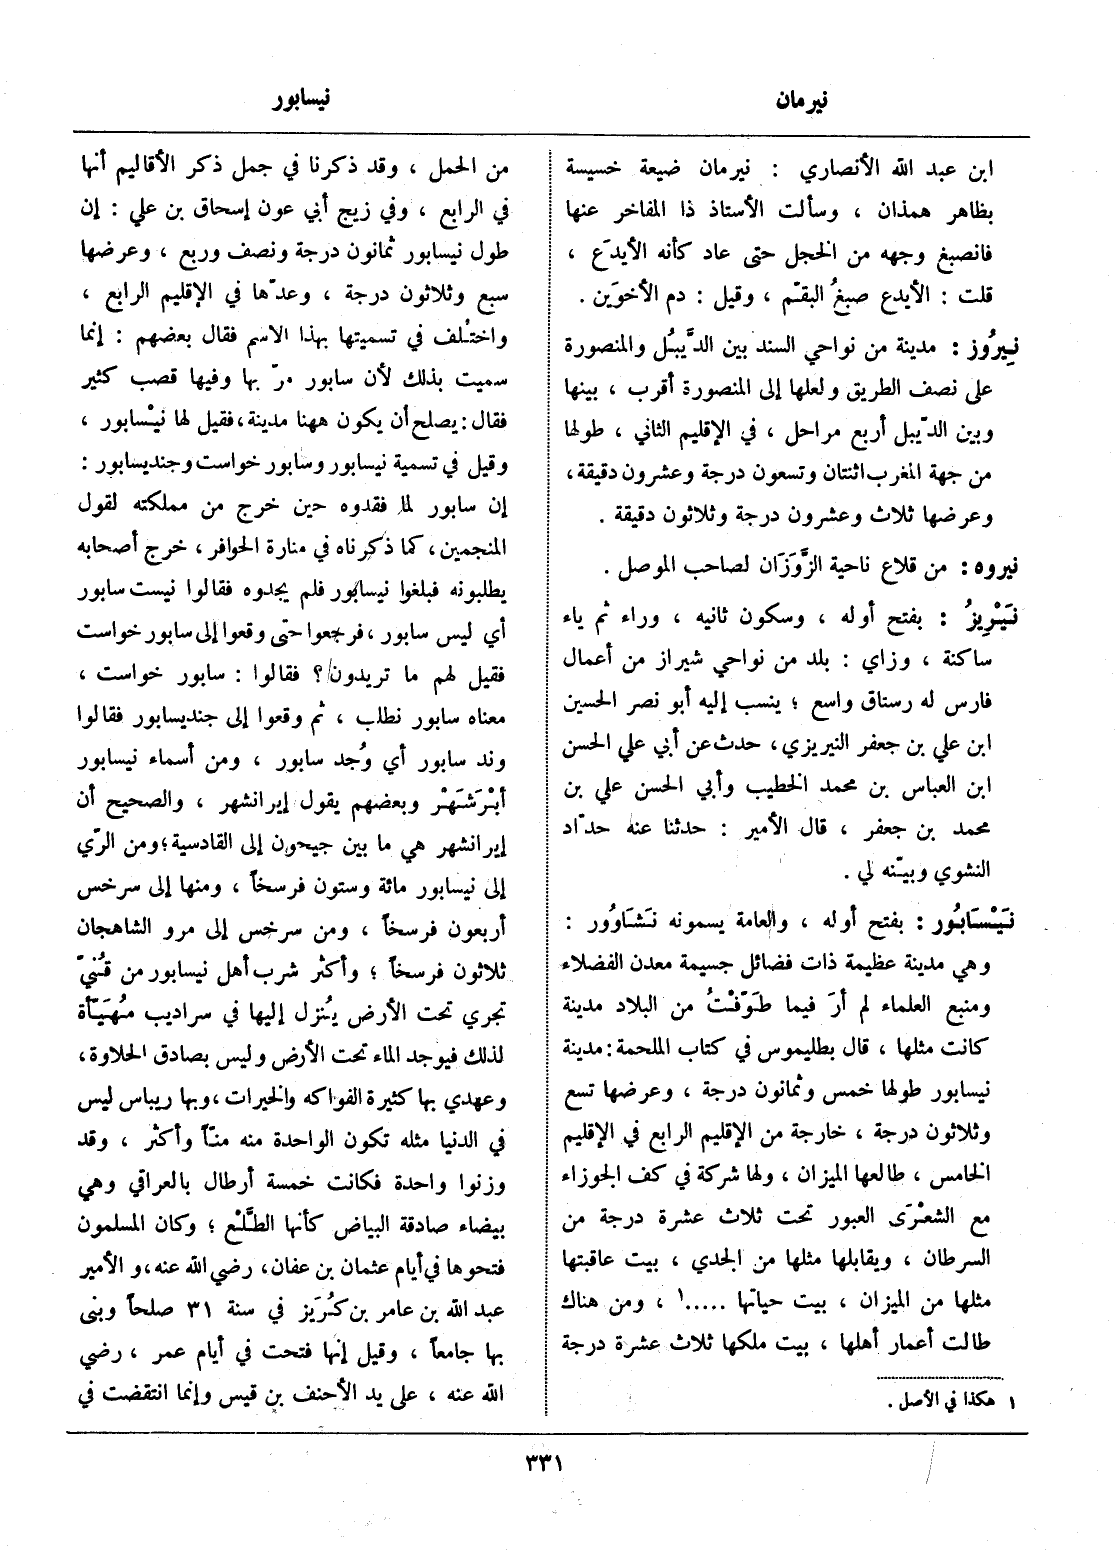 نيرمان
نيسابور
ابن عبد الله الأنصاري : نيرمان ضيعة خسيسة
بظاهر همذان ، وسألت الأستاذ ذا المفاخر عنها
فانصبغ وجهه من الخجل حتى عاد كأنه الأيدَع ،
قلت : الأيدع صبغُ البقّم ، وقيل : دم الأخوَين .
نيرُوز : مدينة من نواحي السند بين الدَّيبُل والمنصورة
على نصف الطريق ولعلها إلى المنصورة أقرب ، بينها
وبين الدّيبل أربع مراحل ، في الإقليم الثاني ، طولها
من جهة المغرب اثنتان وتسعون درجة وعشرون دقيقة ،
وعرضها ثلاث وعشرون درجة وثلاثون دقيقة .
نيروه : من قلاع ناحية الزَّوَزَان لصاحب الموصل .
نَيْرِيزُ : بفتح أوله ، وسكون ثانيه ، وراء ثم ياء
ساكنة ، وزاي : بلد من نواحي شيراز من أعمال
فارس له رستاق واسع ؛ ينسب إليه أبو نصر الحسين
ابن علي بن جعفر النيريزي ، حدث عن أبي علي الحسن
ابن العباس بن محمد الخطيب وأبي الحسن علي بن
محمد بن جعفر ، قال الأمير : حدثنا عنه حدّاد
النشوي وبيّنه لي .
نَيْسَابُور : بفتح أوله ، والعامة يسمونه نَشَاوُور :
وهي مدينة عظيمة ذات فضائل جسيمة معدن الفضلاء
ومنبع العلماء لم أرَ فيما طوّفْتُ من البلاد مدينة
كانت مثلها ، قال بطليموس في كتاب الملحمة : مدينة
نيسابور طولها خمس وثمانون درجة ، وعرضها تسع
وثلاثون درجة ، خارجة من الإقليم الرابع في الإقليم
الخامس ، طالعها الميزان ، ولها شركة في كف الجوزاء
مع الشعْرَى العبور تحت ثلاث عشرة درجة من
السرطان ، ويقابلها مثلها من الجدي ، بيت عاقبتها
مثلها من الميزان ، بيت حياتها .....١ ، ومن هناك
طالت أعمار أهلها ، بيت ملكها ثلاث عشرة درجة
١ هكذا في الأصل .
من الحمل ، وقد ذكرنا في جمل ذكر الأقاليم أنها
في الرابع ، وفي زيج أبي عون إسحاق بن علي : إن
طول نيسابور ثمانون درجة ونصف وربع ، وعرضها
سبع وثلاثون درجة ، وعدّها في الإقليم الرابع ،
واختُلف في تسميتها بهذا الاسم فقال بعضهم : إنما
سميت بذلك لأن سابور مرّ بها وفيها قصب كثير
فقال : يصلح أن يكون ههنا مدينة ، فقيل لها نَيْسابور ،
وقيل في تسمية نيسابور وسابور خواست وجنديسابور :
إن سابور لما فقدوه حين خرج من مملكته لقول
المنجمين ، كما ذكرناه في منارة الحوافر ، خرج أصحابه
يطلبونه فبلغوا نيسابور فلم يجدوه فقالوا نيست سابور
أي ليس سابور ، فرجعوا حتى وقعوا إلى سابور خواست
فقيل لهم ما تريدون ؟ فقالوا : سابور خواست ،
معناه سابور نطلب ، ثم وقعوا إلى جنديسابور فقالوا
وند سابور أي وُجد سابور ، ومن أسماء نيسابور
أبْرَشَهْر وبعضهم يقول إيرانشهر ، والصحيح أن
إيرانشهر هي ما بين جيحون إلى القادسية ؛ ومن الرّي
إلى نيسابور مائة وستون فرسخاً ، ومنها إلى سرخس
أربعون فرسخاً ، ومن سرخس إلى مرو الشاهجان
ثلاثون فرسخاً ؛ وأكثر شرب أهل نيسابور من قُنيّ
تجري تحت الأرض يُنزل إليها في سراديب مُهَيّأة
لذلك فيوجد الماء تحت الأرض وليس بصادق الحلاوة ،
وعهدي بها كثيرة الفواكه والخيرات ، وبها ريباس ليس
في الدنيا مثله تكون الواحدة منه منّاً وأكثر ، وقد
وزنوا واحدة فكانت خمسة أرطال بالعراقي وهي
بيضاء صادقة البياض كأنها الطَّلْع ؛ وكان المسلمون
فتحوها في أيام عثمان بن عفان ، رضي الله عنه ، والأمير
عبد الله بن عامر بن كُرَيز في سنة ٣١ صلحاً وبنى
بها جامعاً ، وقيل إنها فتحت في أيام عمر ، رضي
الله عنه ، على يد الأحنف بن قيس وإنما انتقضت في
٣٣١